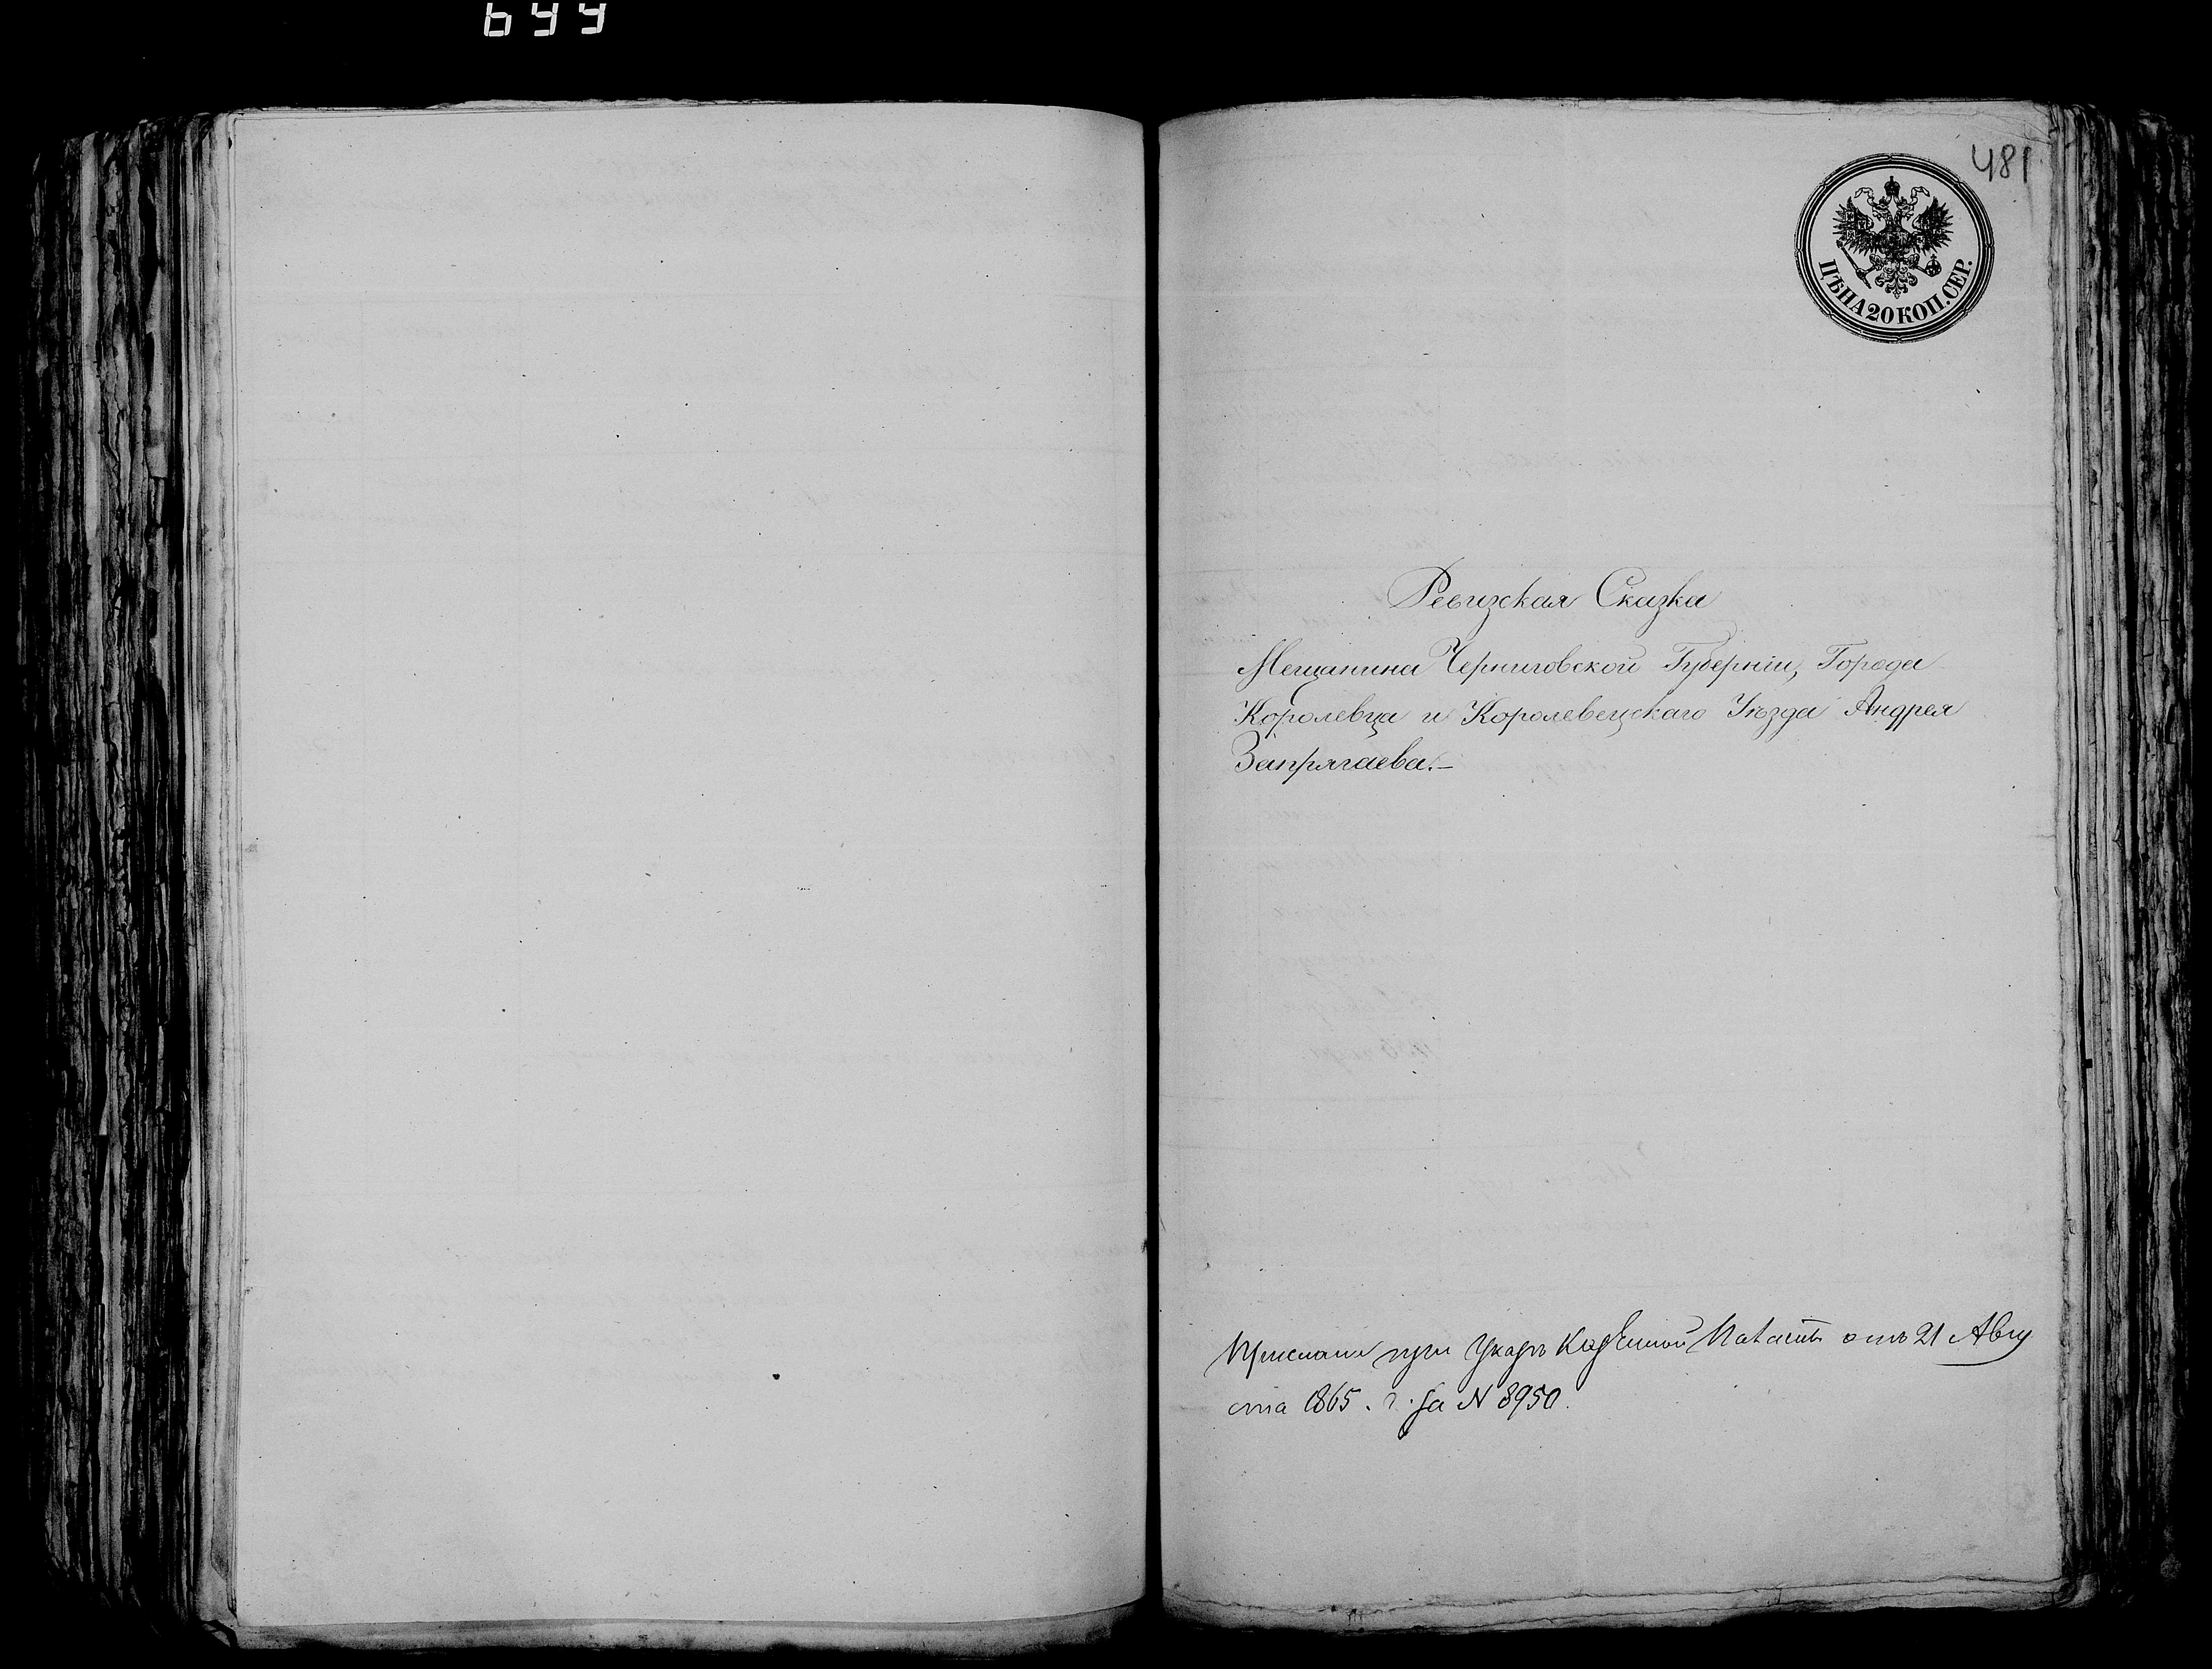 699
481
ЦѢНА 20 КОП. СЕР.
Ревизская Сказка
Мещанина Черниговской Губерніи, Города
Королевца и Королевецкаго Уѣзда Андрея
Запрягаева.—
при Указѣ Казенной Палаты отъ 21 Авгу
ста 1865. г. за N 8950.